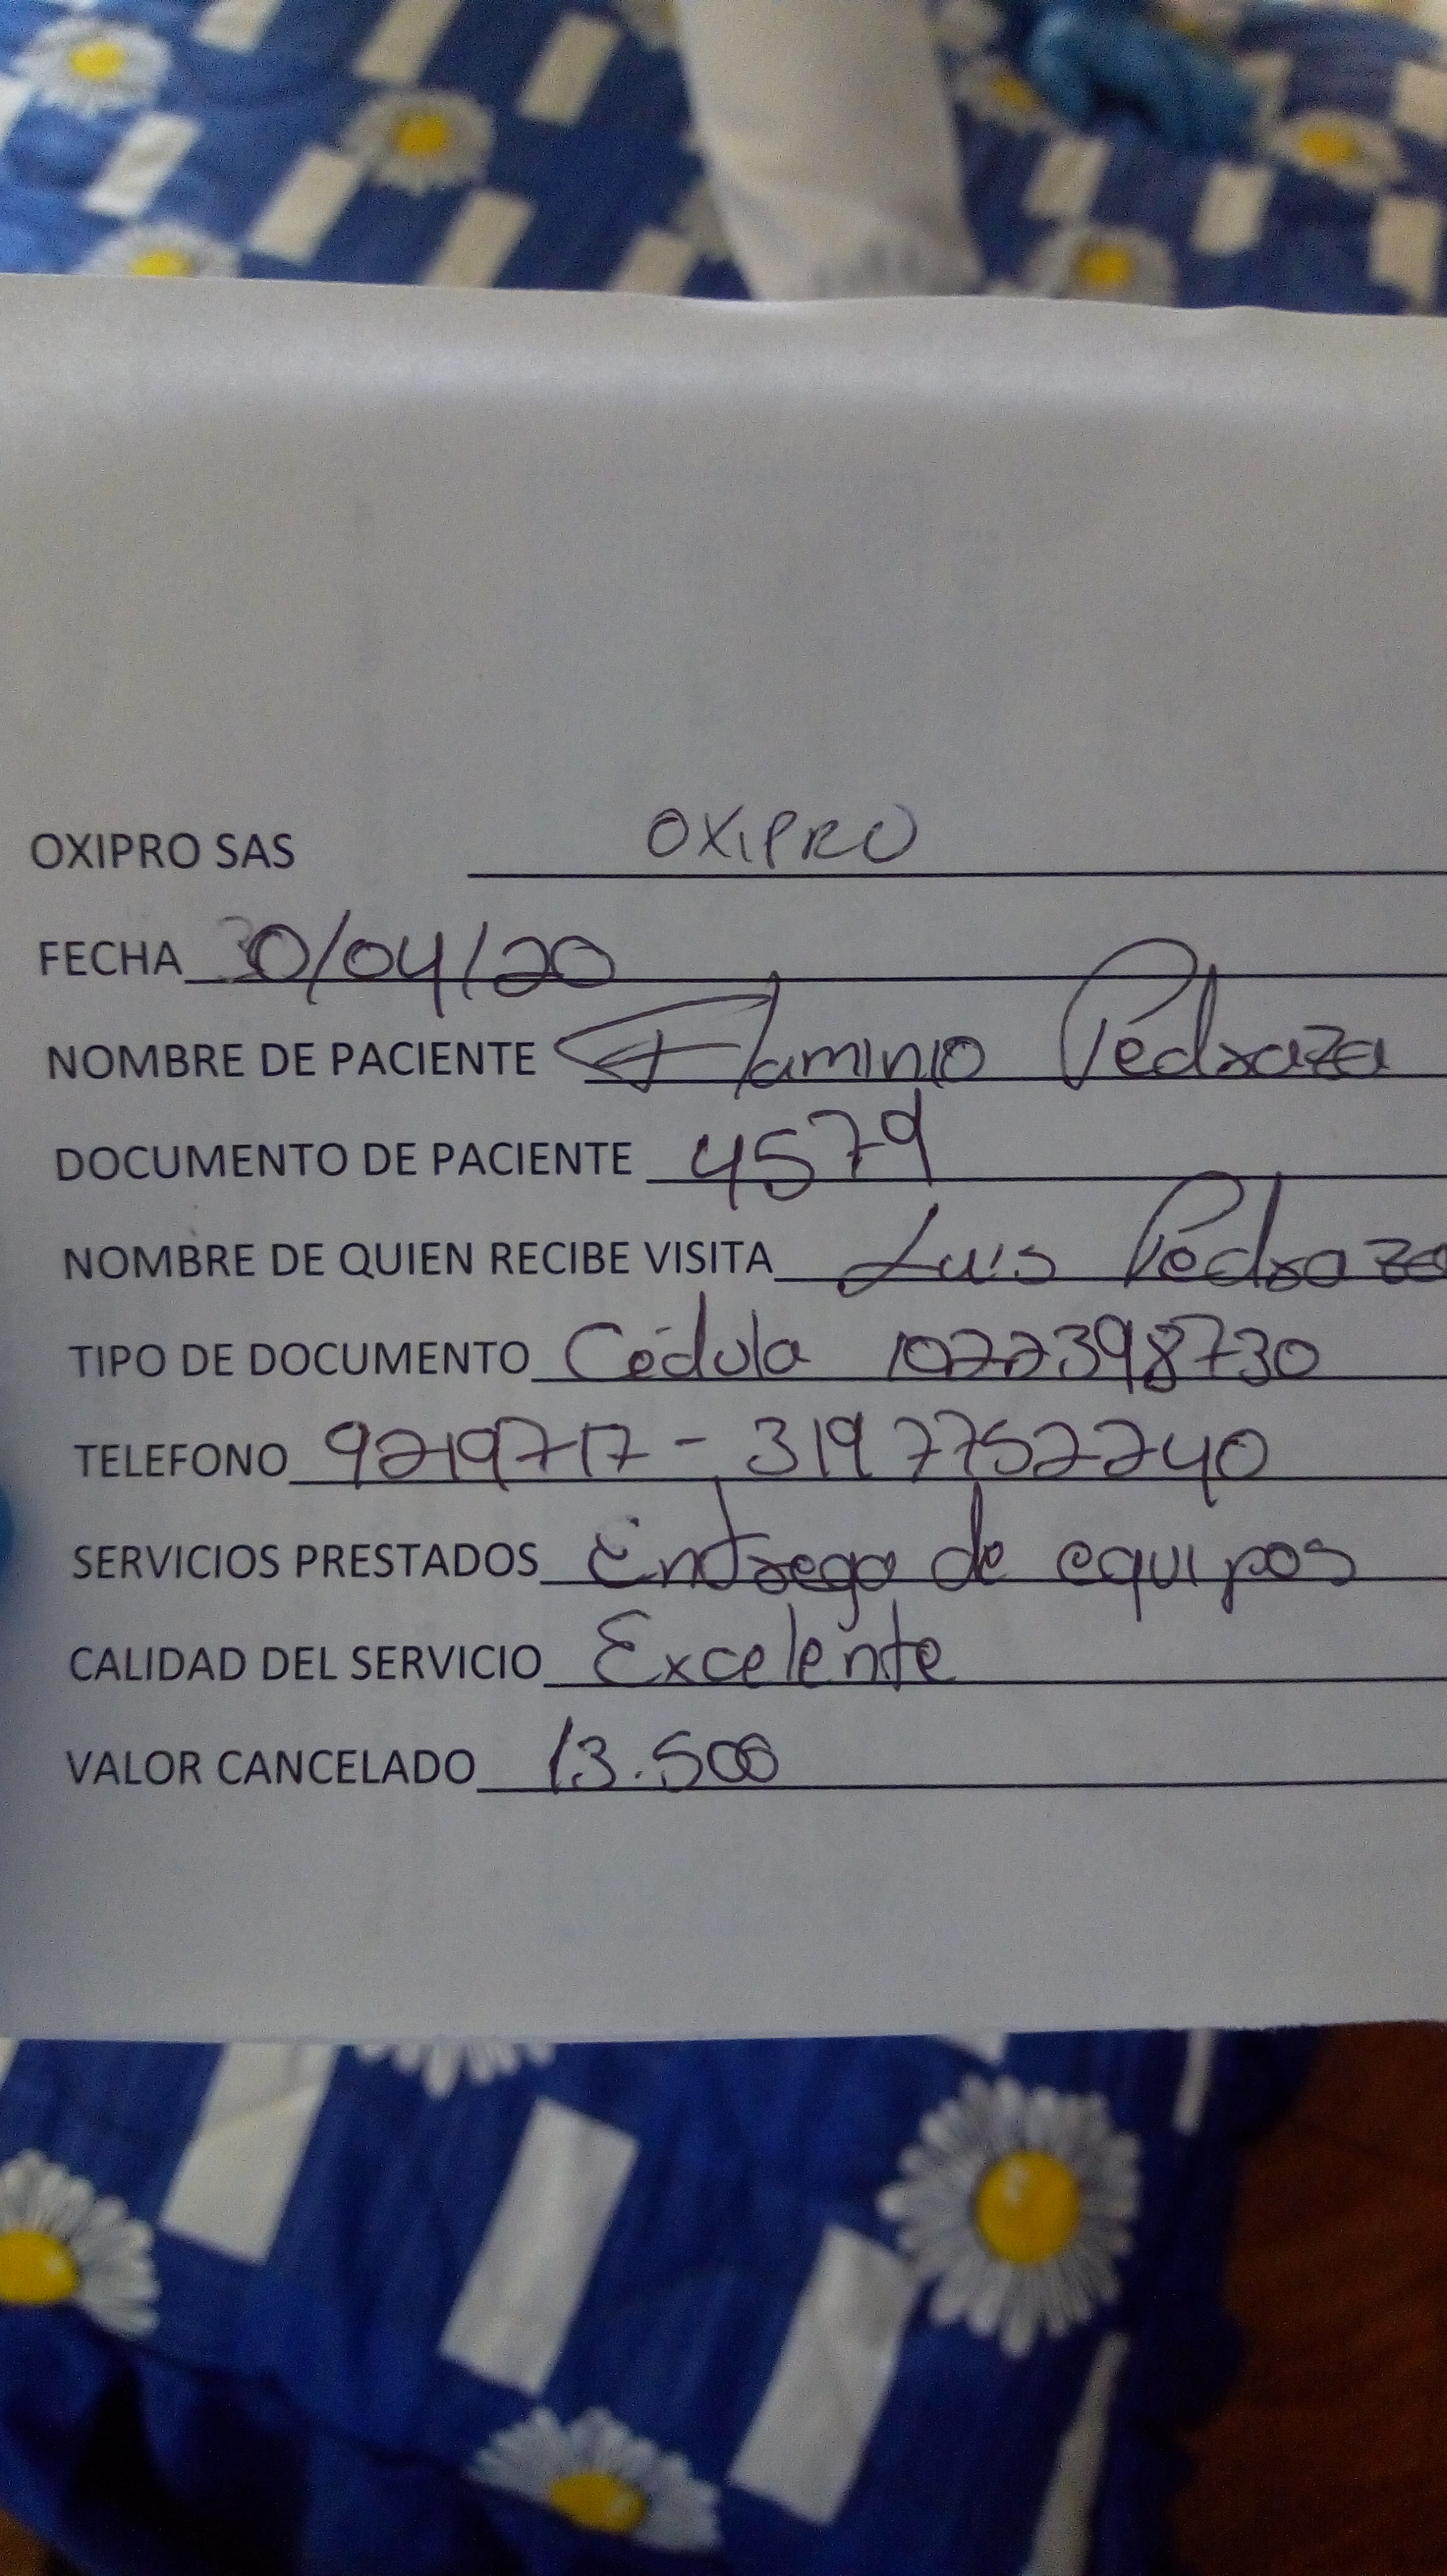 OXIPRO SAS OXIPRO
FECHA 30/04/20
NOMBRE DE PACIENTE Flaminio Pedraza
DOCUMENTO DE PACIENTE 4579
NOMBRE DE QUIEN RECIBE VISITA Luis Pedraza
TIPO DE DOCUMENTO Cédula 1022398730
TELEFONO 9219717 - 3197752240
SERVICIOS PRESTADOS Entrega de equipos
CALIDAD DEL SERVICIO Excelente
VALOR CANCELADO 13.500